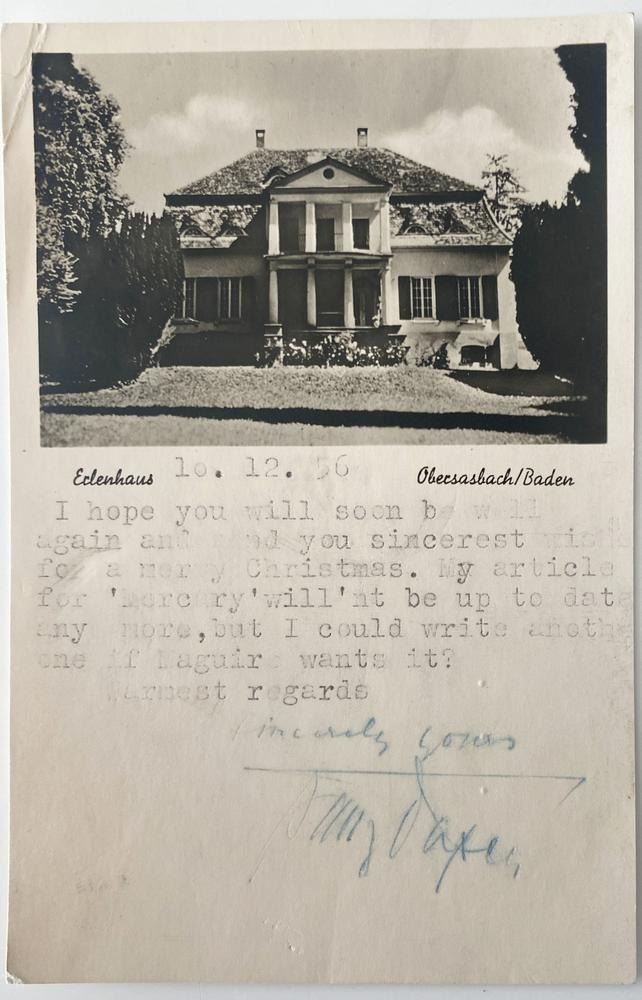 Erlenhaus 10. 12. 56 Obersasbach/Baden
I hope you will soon be well
again and send you sincerest wish
for a merry Christmas. My article
for 'mercury'will'nt be up to date
any more,but I could write anoth
one if Maguire wants it?
Warmest regards
Sincerely yours
Franz von Papen